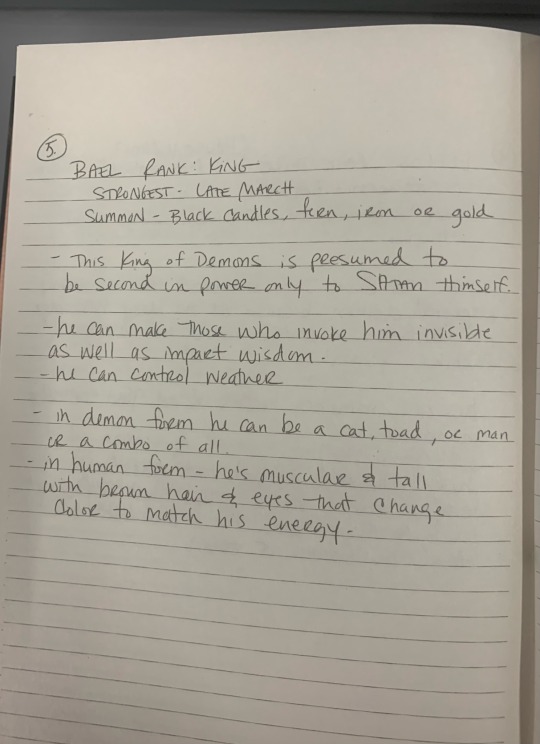 5.
BAEL RANK: KING
STRONGEST - LATE MARCH
Summon - Black Candles, fern, iron or gold
- This King of Demons is presumed to
be second in power only to SATAN Himself.
- he can make those who invoke him invisible
as well as impart wisdom.
- he can control weather
- in demon form he can be a cat, toad, or man
or a combo of all.
- in human form - he's muscular & tall
with brown hair & eyes that change
Color to match his energy.